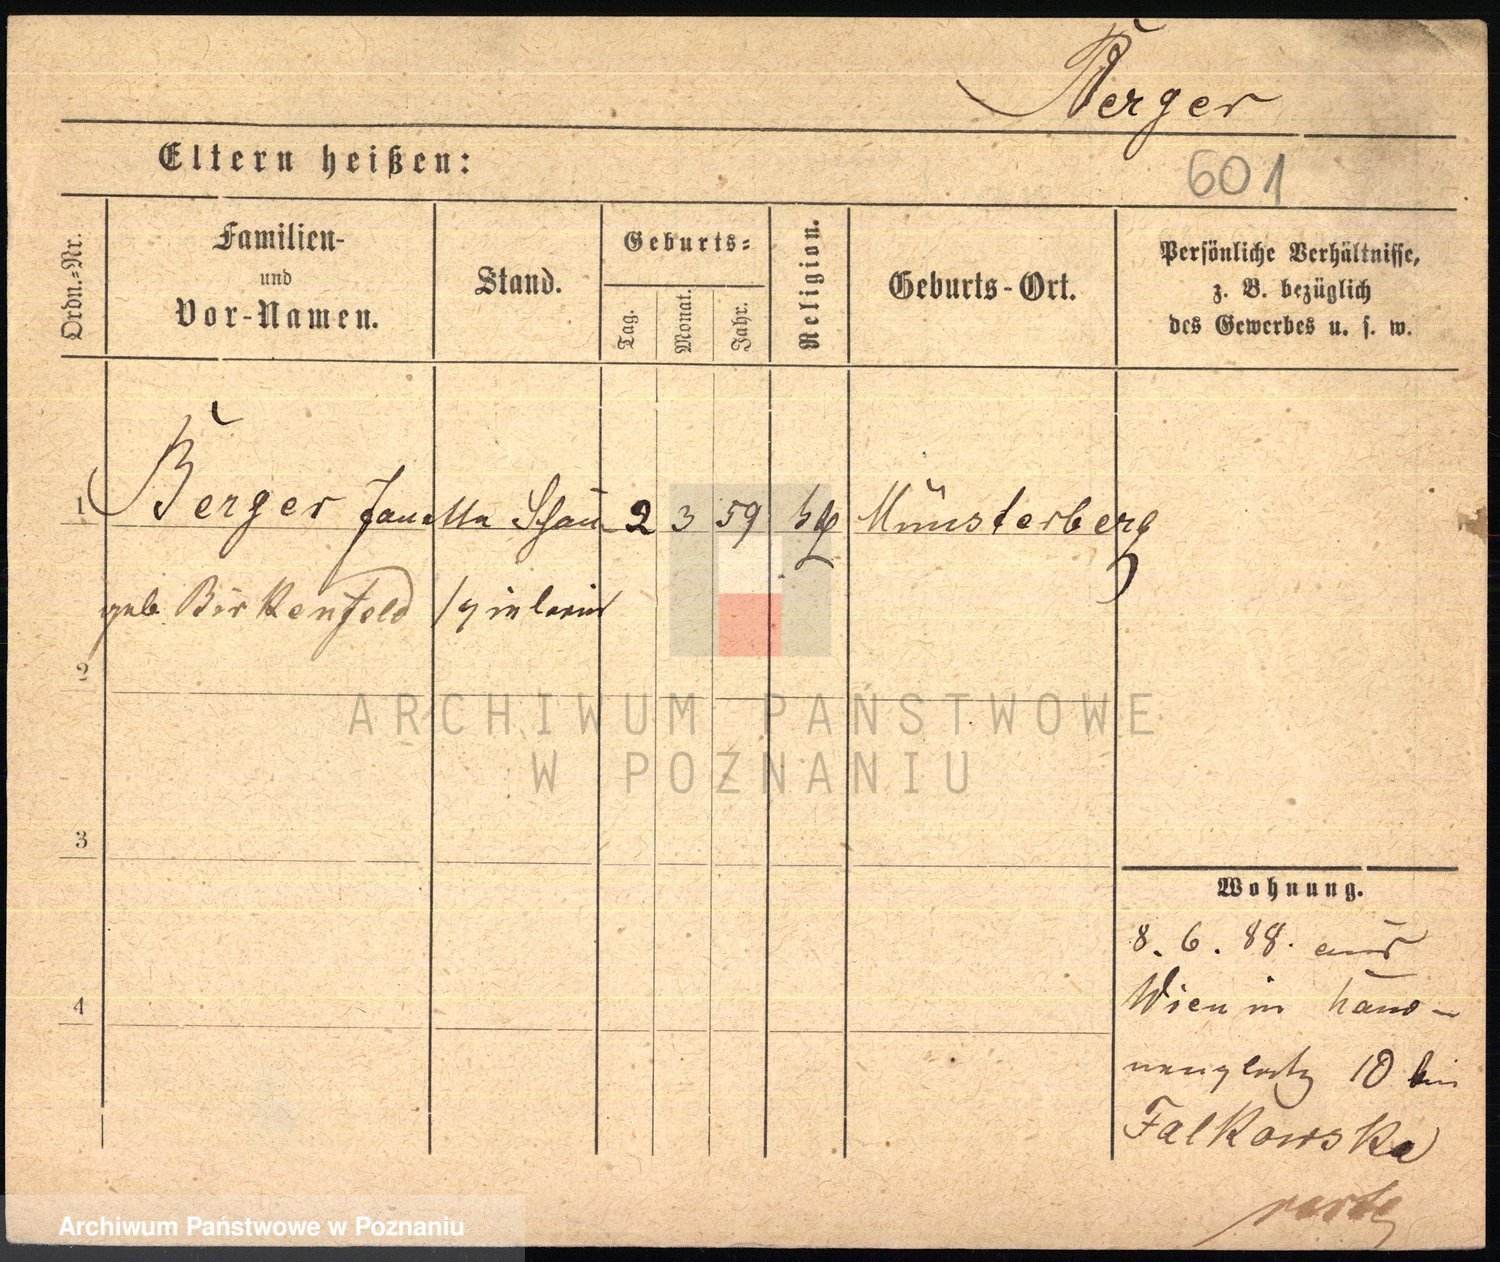 Berger
Eltern heißen:
601
Ordn.=Nr.
Familien-
und
Vor-Namen.
Stand.
Geburts=
Tag.
Monat.
Jahr.
Religion.
Geburts-Ort.
Persönliche Verhältnisse,
z. B. bezüglich
des Gewerbes u. s. w.
1
Berger Janetta Schau- 2 3 59 Münsterberg
geb Birkenfeld spielerin
2
ARCHIWUM PAŃSTWOWE
W POZNANIU
3
Wohnung.
8. 6. 88. aus
4
Wien in
10 bei
Falkowska
Archiwum Państwowe w Poznaniu